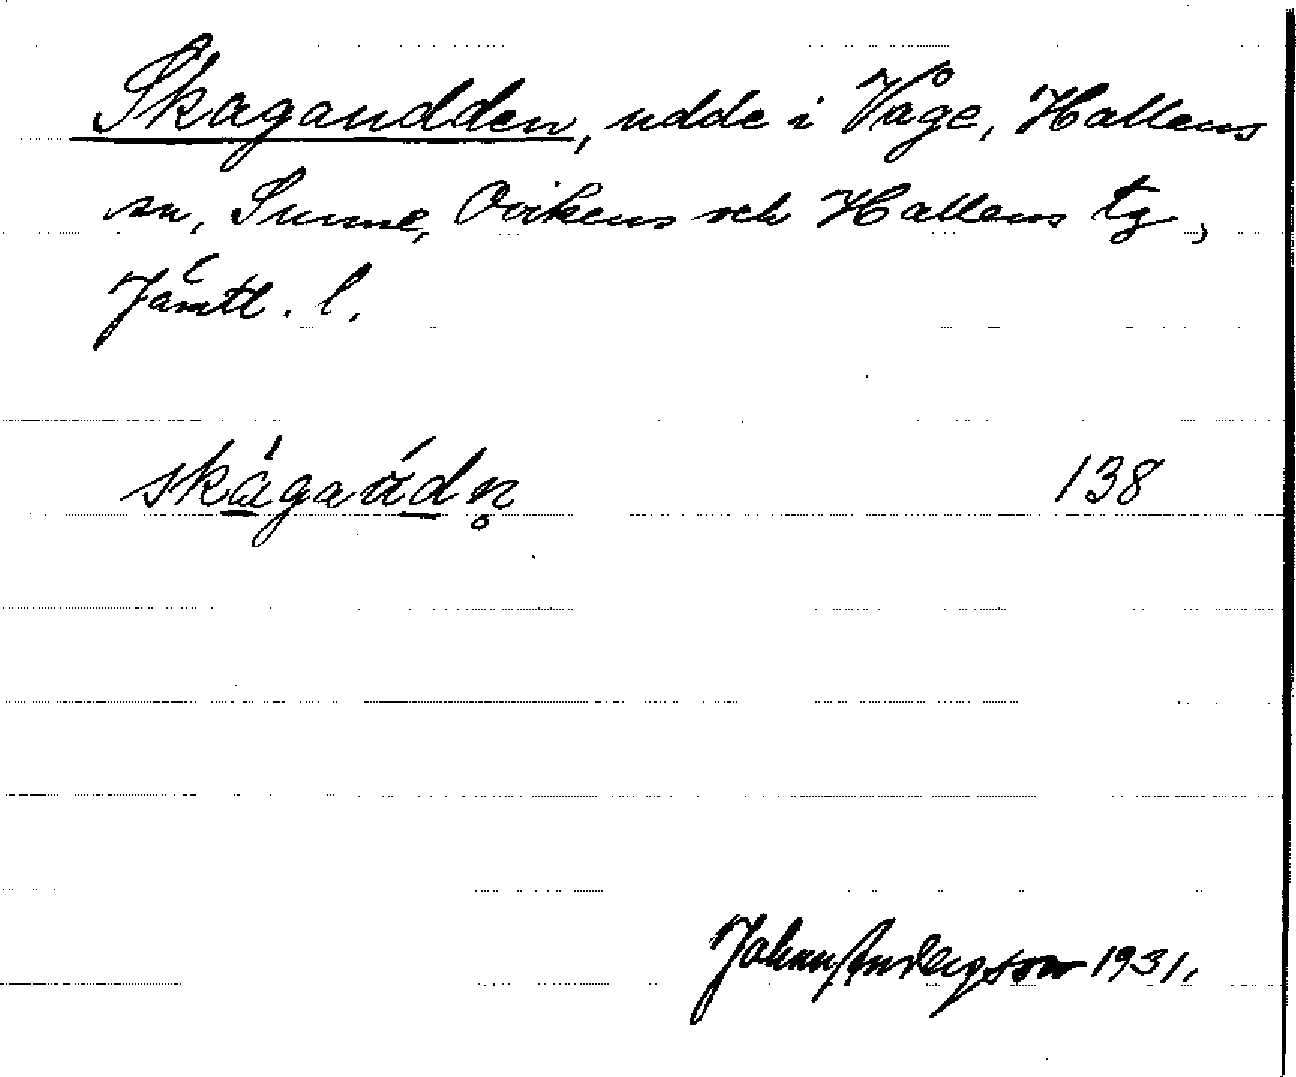 Skagaudden, udde i Våge, Hallens
sn, Sunne, Ovikens och Hallens tg,
Jämtl. l.
skágaúdn̥ 138
Johan Andersson 1931.